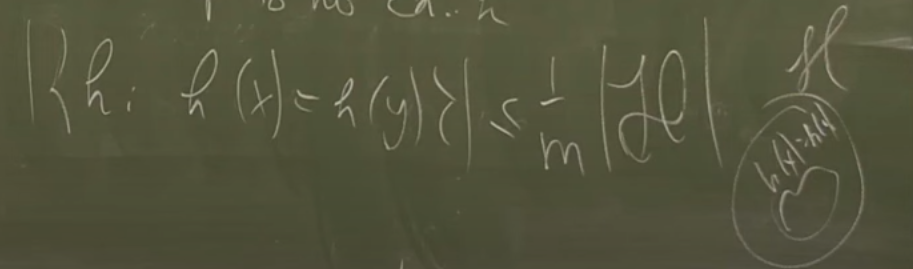 |{h: h(x)=h(y)}| ≤ 1/m |ℋ|
ℋ
h(x)=h(y)